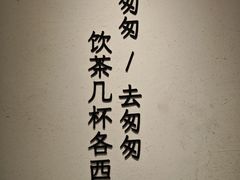 匆匆/去匆匆
饮茶几杯各西